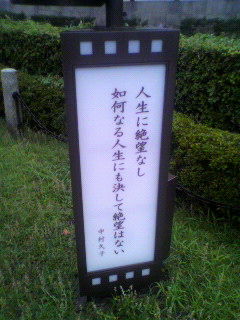 人生に絶望なし
如何なる人生にも決して絶望はない
中村久子